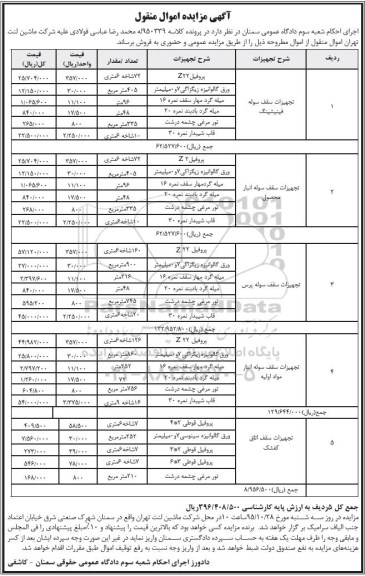 آگهی مزایده اموال منقول
اجرای احکام شعبه سوم دادگاه عمومی سمنان در نظر دارد در پرونده کلاسه ۹۵۰۳۳۹له محمد رضا عباسی فولادی علیه شرکت ماشین لنت
تهران اموال منقول از اموال مطروحه ذیل را از طریق مزایده عمومی و حضوری به فروش برساند.
ردیف شرح تجهیزات شرح تجهیزات تعداد /مقدار قیمت واحد(ریال) قیمت کل(ریال)
۱ تجهیزات سقف سوله فینیشینگ
پروفیل Z۲۲ ۷۲شاخه ۶متری ۳۵۷/۰۰۰ ۲۵/۷۰۴/۰۰۰
ورق گالوانیزه زیگزاگی۷و۰میلیمتر ۴۰۵متر مربع ۳۰/۰۰۰ ۱۲/۱۵۰/۰۰۰
میله گرد مهار سقف نمره ۱۶ ۹۶متر ۱۱/۱۰۰ ۱/۰۶۵/۶۰۰
میله گرد بادبند نمره ۲۰ ۴۸متر ۱۷/۵۰۰ ۸۴۰/۰۰۰
تور مرغی چشمه درشت ۳۳۵متر مربع ۸۰۰ ۲۶۵/۰۰۰
قاب شیبدار نمره ۳۰ ۱۰شاخه ۶متری ۲/۲۵۰/۰۰۰ ۲۲/۵۰۰/۰۰۰
جمع (ریال) ۶۲/۵۲۷/۶۰۰
۲ تجهیزات سقف سوله انبار محصول
پروفیل Z ۲۲ ۷۲شاخه ۶متری ۳۵۷/۰۰۰ ۲۵/۷۰۴/۰۰۰
ورق گالوانیزه زیگزاگی۷و۰میلیمتر ۴۰۵مترمربع ۳۰/۰۰۰ ۱۲/۱۵۰/۰۰۰
میله گردمهار سقف نمره ۱۶ ۹۶متر ۱۱/۱۰۰ ۱/۰۶۵/۶۰۰
میله گرد بادبند نمره ۲۰ ۴۸متر ۱۷/۵۰۰ ۸۴۰/۰۰۰
تور مرغی چشمه درشت ۳۳۵مترمربع ۸۰۰ ۲۶۸/۰۰۰
قاب شیبدار نمره ۳۰ ۱۰شاخه۶متری ۲/۲۵۰/۰۰۰ ۲۲/۵۰۰/۰۰۰
جمع (ریال) ۶۲/۵۲۷/۶۰۰
۳ تجهیزات سقف سوله پرس
پروفیل Z ۲۲ ۱۶۰شاخه۶متری ۳۵۷/۰۰۰ ۵۷/۱۲۰/۰۰۰
ورق گالوانیزه زیگزاگی۷و۰میلیمتر ۹۰۰مترمربع ۳۰/۰۰۰ ۲۷/۰۰۰/۰۰۰
میله گرد مهار سقف نمره ۱۶ ۲۱۶متر ۱۱/۱۰۰ ۲/۳۹۷/۶۰۰
میله گرد بادبند نمره ۲۰ ۴۸متر ۱۷/۵۰۰ ۸۴۰/۰۰۰
تور مرغی چشمه درشت ۷۴۵مترمربع ۸۰۰ ۵۹۵/۲۰۰
قاب شیبدار نمره ۳۰ ۲۰شاخه ۶متری ۲/۲۵۰/۰۰۰ ۴۵/۰۰۰/۰۰۰
جمع(ریال) ۱۳۲/۹۵۲/۸۰۰
۴ تجهیزات سقف سوله انبار مواد اولیه
پروفیل Z ۲۲ ۱۲۶شاخه ۶متری ۳۵۷/۰۰۰ ۴۴/۹۸۲/۰۰۰
ورق گالوانیزه زیگزاگی۷و۰میلیمتر ۸۶۰متر مربع ۳۰/۰۰۰ ۲۵/۸۰۰/۰۰۰
میله گرد مهار سقف نمره ۱۶ ۲۵۲متر ۱۱/۱۰۰ ۲/۷۹۷/۲۰۰
میله گرد بادبند نمره ۲۰ ۷۲ ۱۷/۵۰۰ ۱/۲۶۰/۰۰۰
تور مرغی چشمه درشت ۷۵۶متر مربع ۸۰۰ ۶۰۴/۸۰۰
قاب شیبدار نمره ۳۰ ۱۶شاخه ۹متری ۳/۳۷۵/۰۰۰ ۵۴/۰۰۰/۰۰۰
جمع(ریال) ۱۲۹/۶۴۴/۰۰۰
۵ تجهیزات سقف اتاق کفشک
پروفیل قوطی ۴*۲ ۷شاخه ۶متری ۵۸/۵۰۰ ۴۰۹/۵۰۰
ورق گالوانیزه سینوسی۷و۰میلیمتر ۲۵۲مترمربع ۳۰/۰۰۰ ۷/۵۶۰/۰۰۰
پروفیل قوطی ۲*۲ ۷شاخه ۶متری ۳۹/۰۰۰ ۲۷۳/۰۰۰
پروفیل قوطی ۳*۶ ۷شاخه ۶متری ۷۸/۰۰۰ ۵۴۶/۰۰۰
تور مرغی چشمه درشت ۲۱۰متر مربع ۸۰۰ ۱۶۸/۰۰۰
جمع (ریال) ۸/۹۵۶/۵۰۰
جمع کل ۵ردیف به ارزش پایه کارشناسی ۳۹۶/۴۰۸/۵۰۰ریال
مزایده در روز سه شنبه مورخ ۹۵/۱۰/۲۸ساعت ۱۰در محل شرکت ماشین لنت تهران واقع در سمنان شهرک صنعتی شرق خیابان اعتماد
جنب الیاف سرامیک برگزار خواهد شد. برنده مزایده کسی خواهد بود که بالاترین قیمت را پیشنهاد و ۱۰٪مبلغ پیشنهادی را فی المجلس
و مابقی وجه را ظرف مهلت یک هفته به حساب سپرده دادگستری سمنان واریز نماید در غیر این صورت وجه سپرده ایشان بعد از کسر
هزینه‌های مزایده به نفع صندوق دولت ضبط خواهد شد و بعد از واریز وجه نسبت به رفع توقیف اموال طبق مقررات اقدام خواهد شد.
دادورز اجرای احکام شعبه سوم دادگاه عمومی حقوقی سمنان - کاشفی